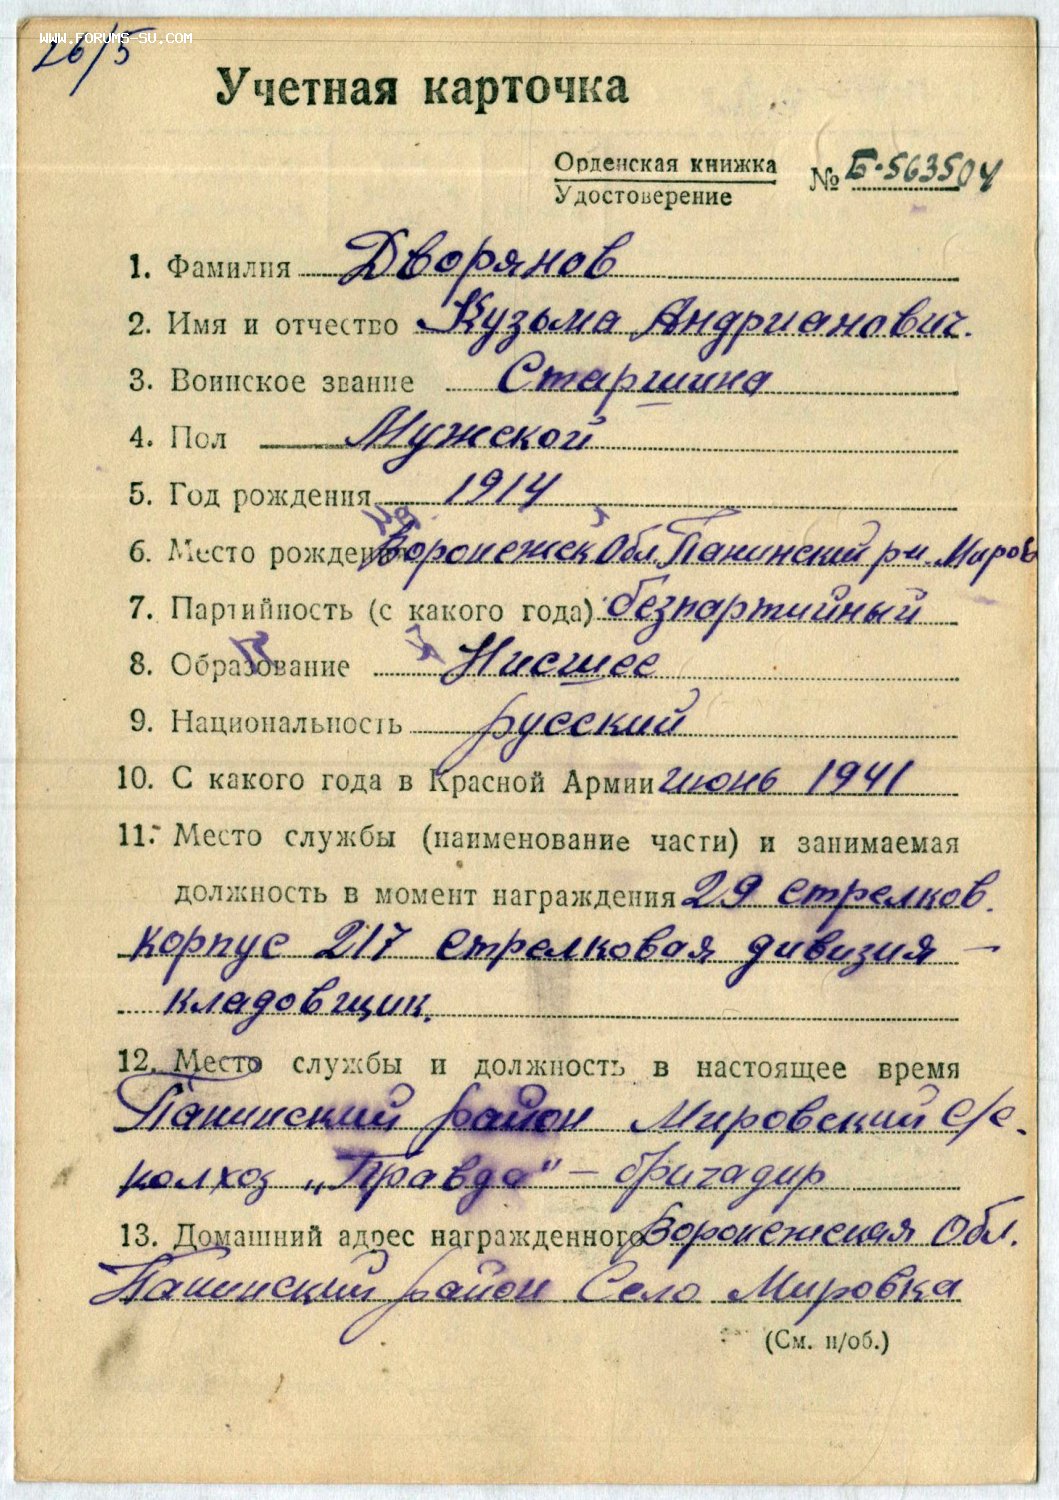 WWW.FORUMS-SU.COM
26/5
Учетная карточка
Орденская книжка
Удостоверение
№ Б-563504
1. Фамилия Дворянов
2. Имя и отчество Кузьма Андрианович.
3. Воинское звание Старшина
4. Пол Мужской
5. Год рождения 1914
6. Место рождения Воронежск Обл. Панинский р-н. Миров
7. Партийность (с какого года) безпартийный
8. Образование Нисшее
9. Национальность русский
10. С какого года в Красной Армии июнь 1941
11. Место службы (наименование части) и занимаемая
должность в момент награждения 29 стрелков.
корпус 217 стрелковая дивизия –
кладовщик.
12. Место службы и должность в настоящее время
Панинский район Мировский с/с.
колхоз „Правда" – бригадир
13. Домашний адрес награжденного Воронежская Обл.
Панинский район Село Мировка
(См. н/об.)